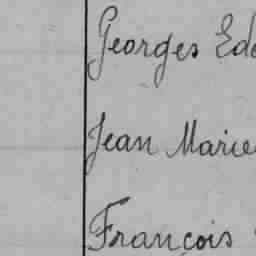 Georges
Jean Marie
François